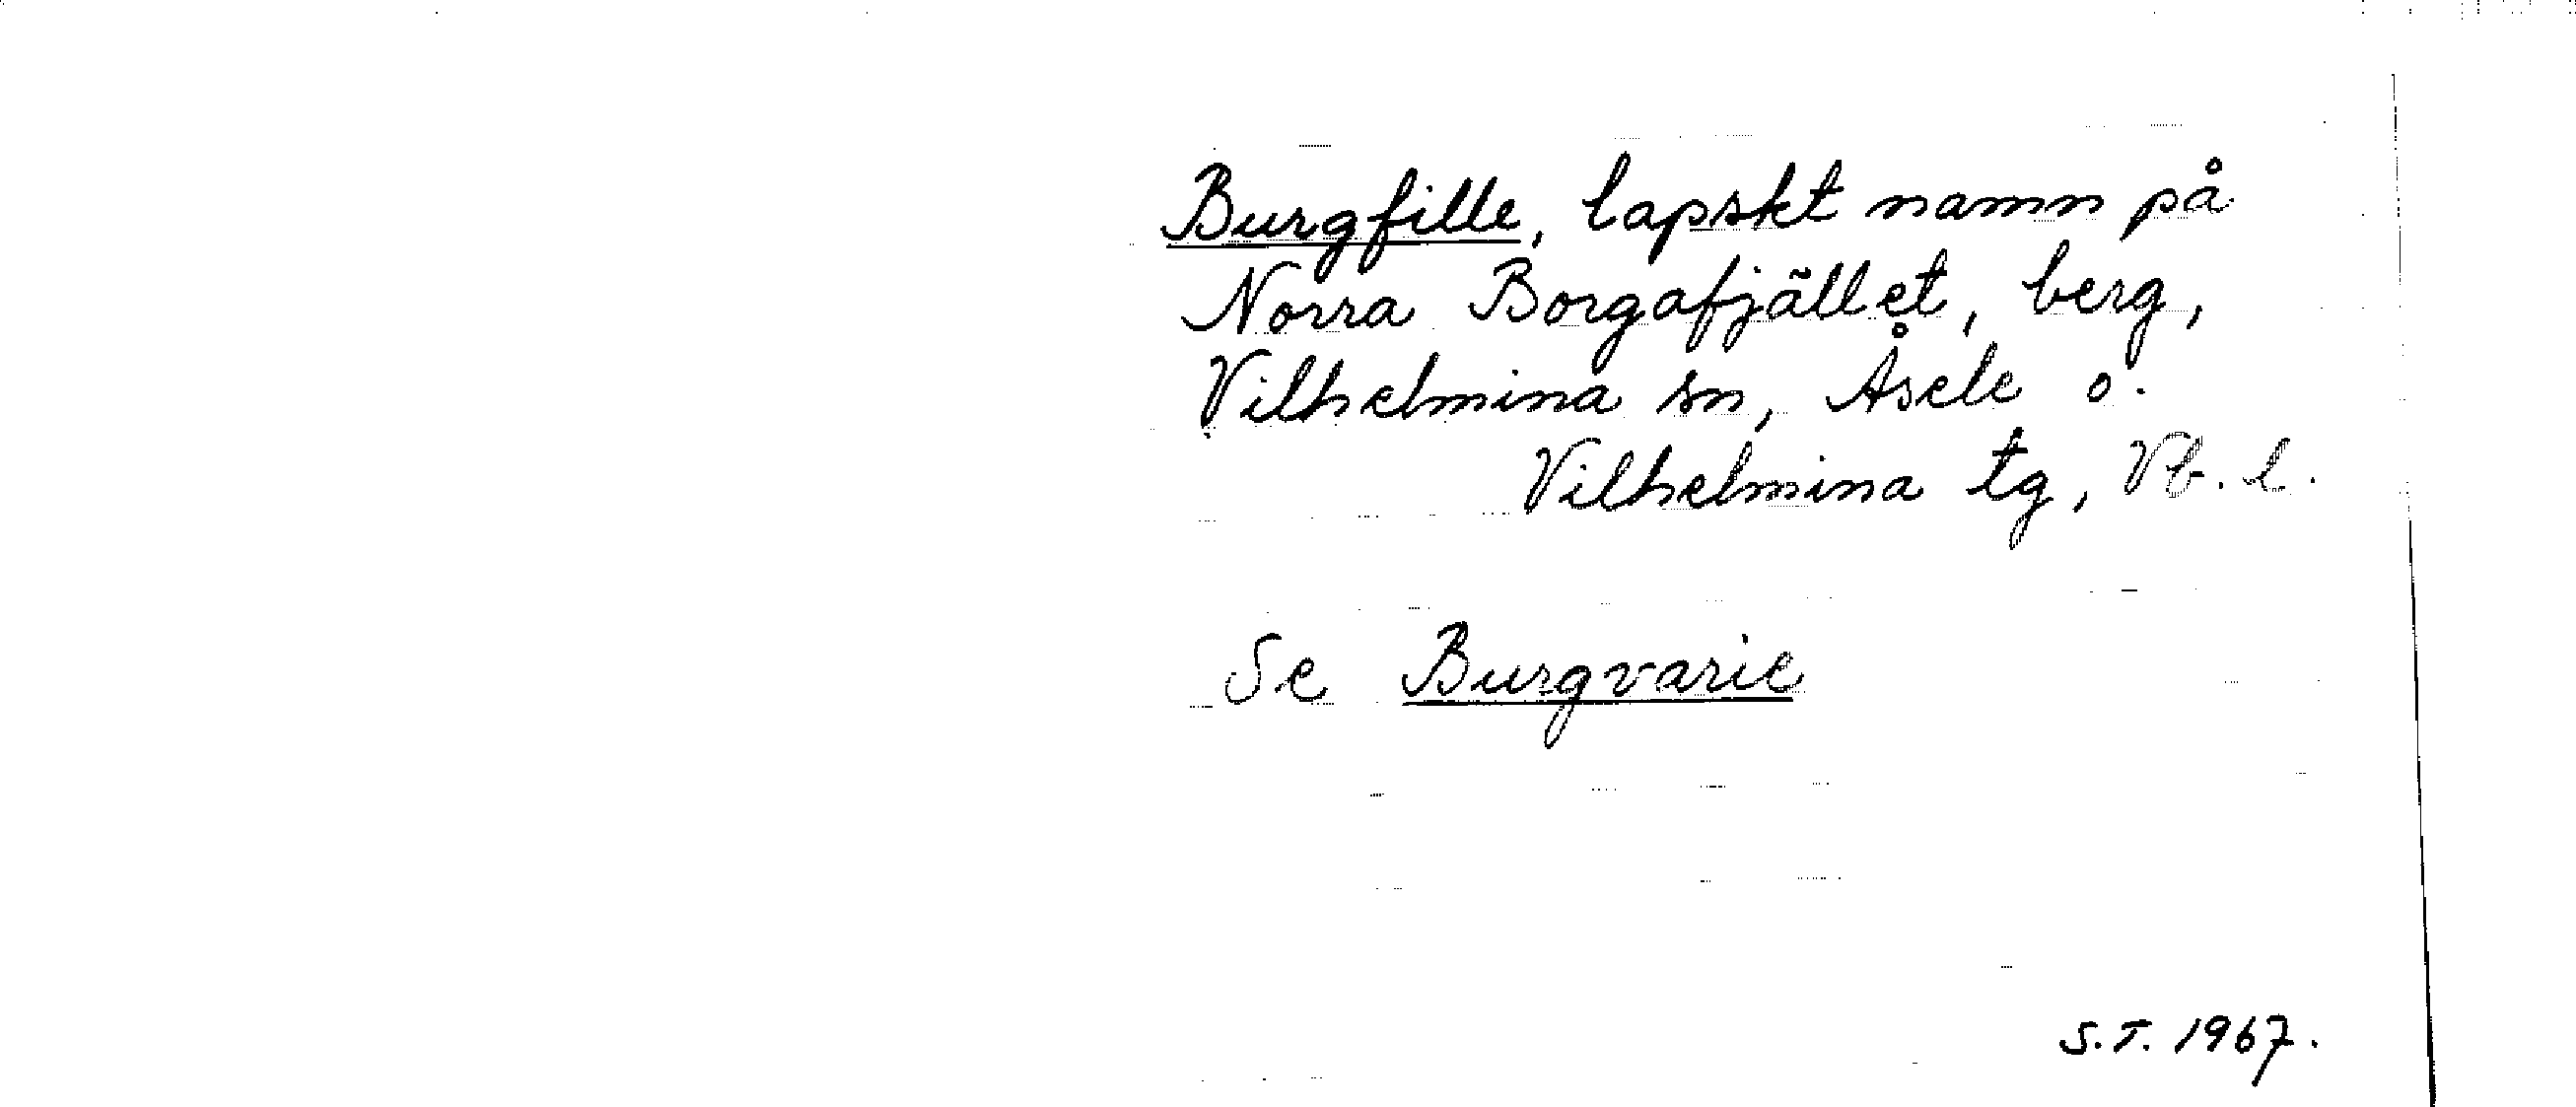 Burgfille, lapskt namn på
Norra Borgafjället, berg,
Vilhelmina sn, Åsele o.
Vilhelmina tg, Vb. l.
Se Burgvarie
S.T. 1967.